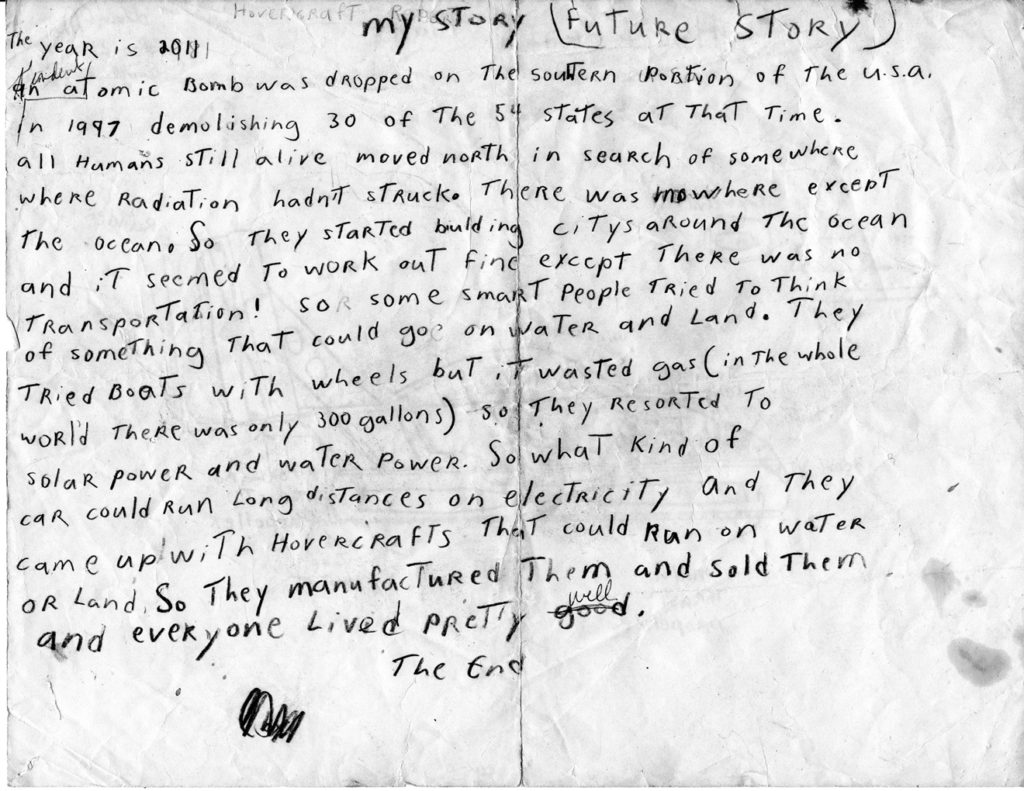 my STORY (Future STORY)
The year is 2011
An atomic Bomb was dropped on The southern portion of The u.s.a.
in 1997 demolishing 30 of The 54 states at That Time.
all Humans still alive moved north in search of somewhere
where Radiation hadn't struck. There was nowhere except
The ocean. So They started building citys around The ocean
and it seemed To work out fine except There was no
Transportation! so some smart People Tried To Think
of something That could go on water and Land. They
Tried Boats with wheels but it wasted gas (in The whole
world There was only 300 gallons) so They Resorted To
solar power and water Power. So what kind of
car could Run Long distances on electricity and They
came up with Hovercrafts That could Run on water
or Land. So They manufactured Them and sold Them
and everyone Lived pretty well.
The End